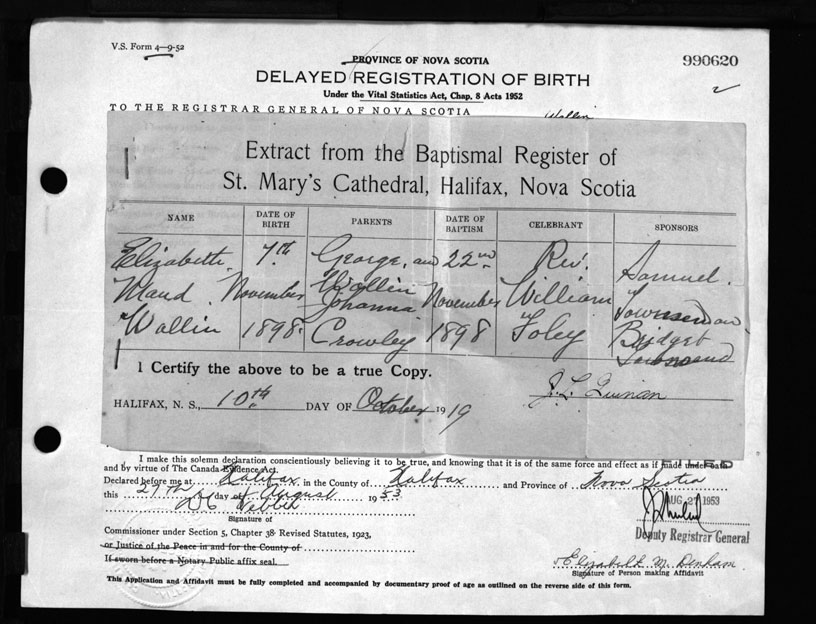 V.S. Form 4—9-52
PROVINCE OF NOVA SCOTIA
990620
DELAYED REGISTRATION OF BIRTH
2
Under the Vital Statistics Act, Chap. 8 Acts 1952
TO THE REGISTRAR GENERAL OF NOVA SCOTIA
Wallin
Extract from the Baptismal Register of
St. Mary's Cathedral, Halifax, Nova Scotia
NAME DATE OF BIRTH PARENTS DATE OF BAPTISM CELEBRANT SPONSORS
Elizabeth 7th George, and 22nd Rev. Samuel
Maud November Wallin November William Townsend an
Johanna
Wallin 1898 Crowley 1898 Foley Bridget
Townsend
I Certify the above to be a true Copy.
J. L. Quinan
HALIFAX, N. S., 10th DAY OF October 1919
I make this solemn declaration conscientiously believing it to be true, and knowing that it is of the same force and effect as if made under oath
and by virtue of The Canada Evidence Act.
FILED
Declared before me at Halifax in the County of Halifax and Province of Nova Scotia
this 27th day of August 1953
AUG 27 1953
Signature of
Commissioner under Section 5, Chapter 38 Revised Statutes, 1923,
Deputy Registrar General
or Justice of the Peace in and for the County of
If sworn before a Notary Public affix seal.
Elizabeth M. Denham
Signature of Person making Affidavit
This Application and Affidavit must be fully completed and accompanied by documentary proof of age as outlined on the reverse side of this form.